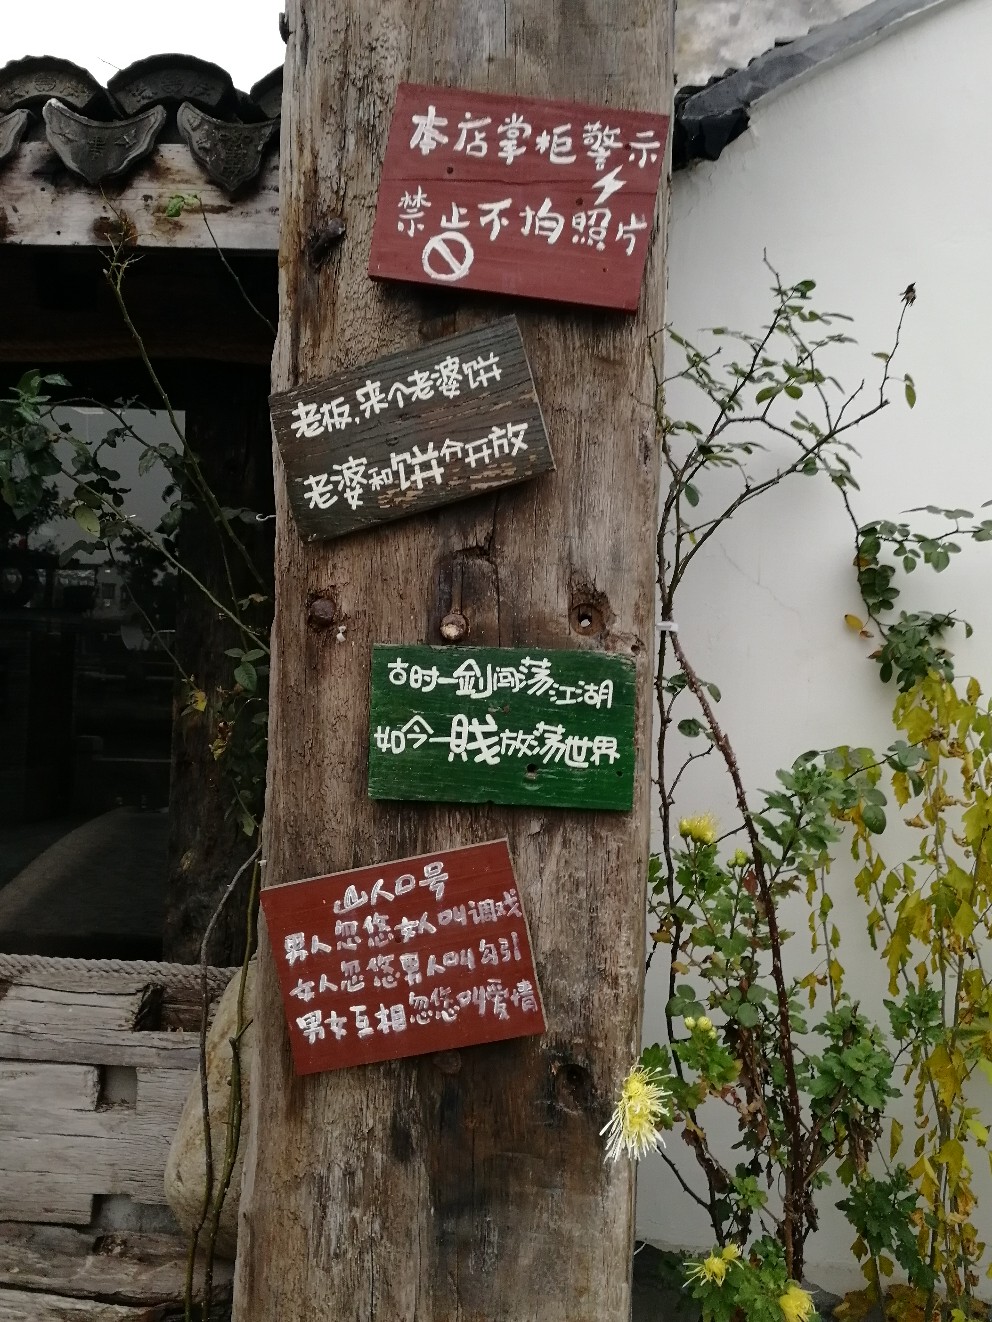 本店掌柜警示
禁止不拍照片
老板,来个老婆饼
老婆和饼分开放
古时一剑闯荡江湖
如今一贱放荡世界
山人口号
男人忽悠女人叫调戏
女人忽悠男人叫勾引
男女互相忽悠叫爱情